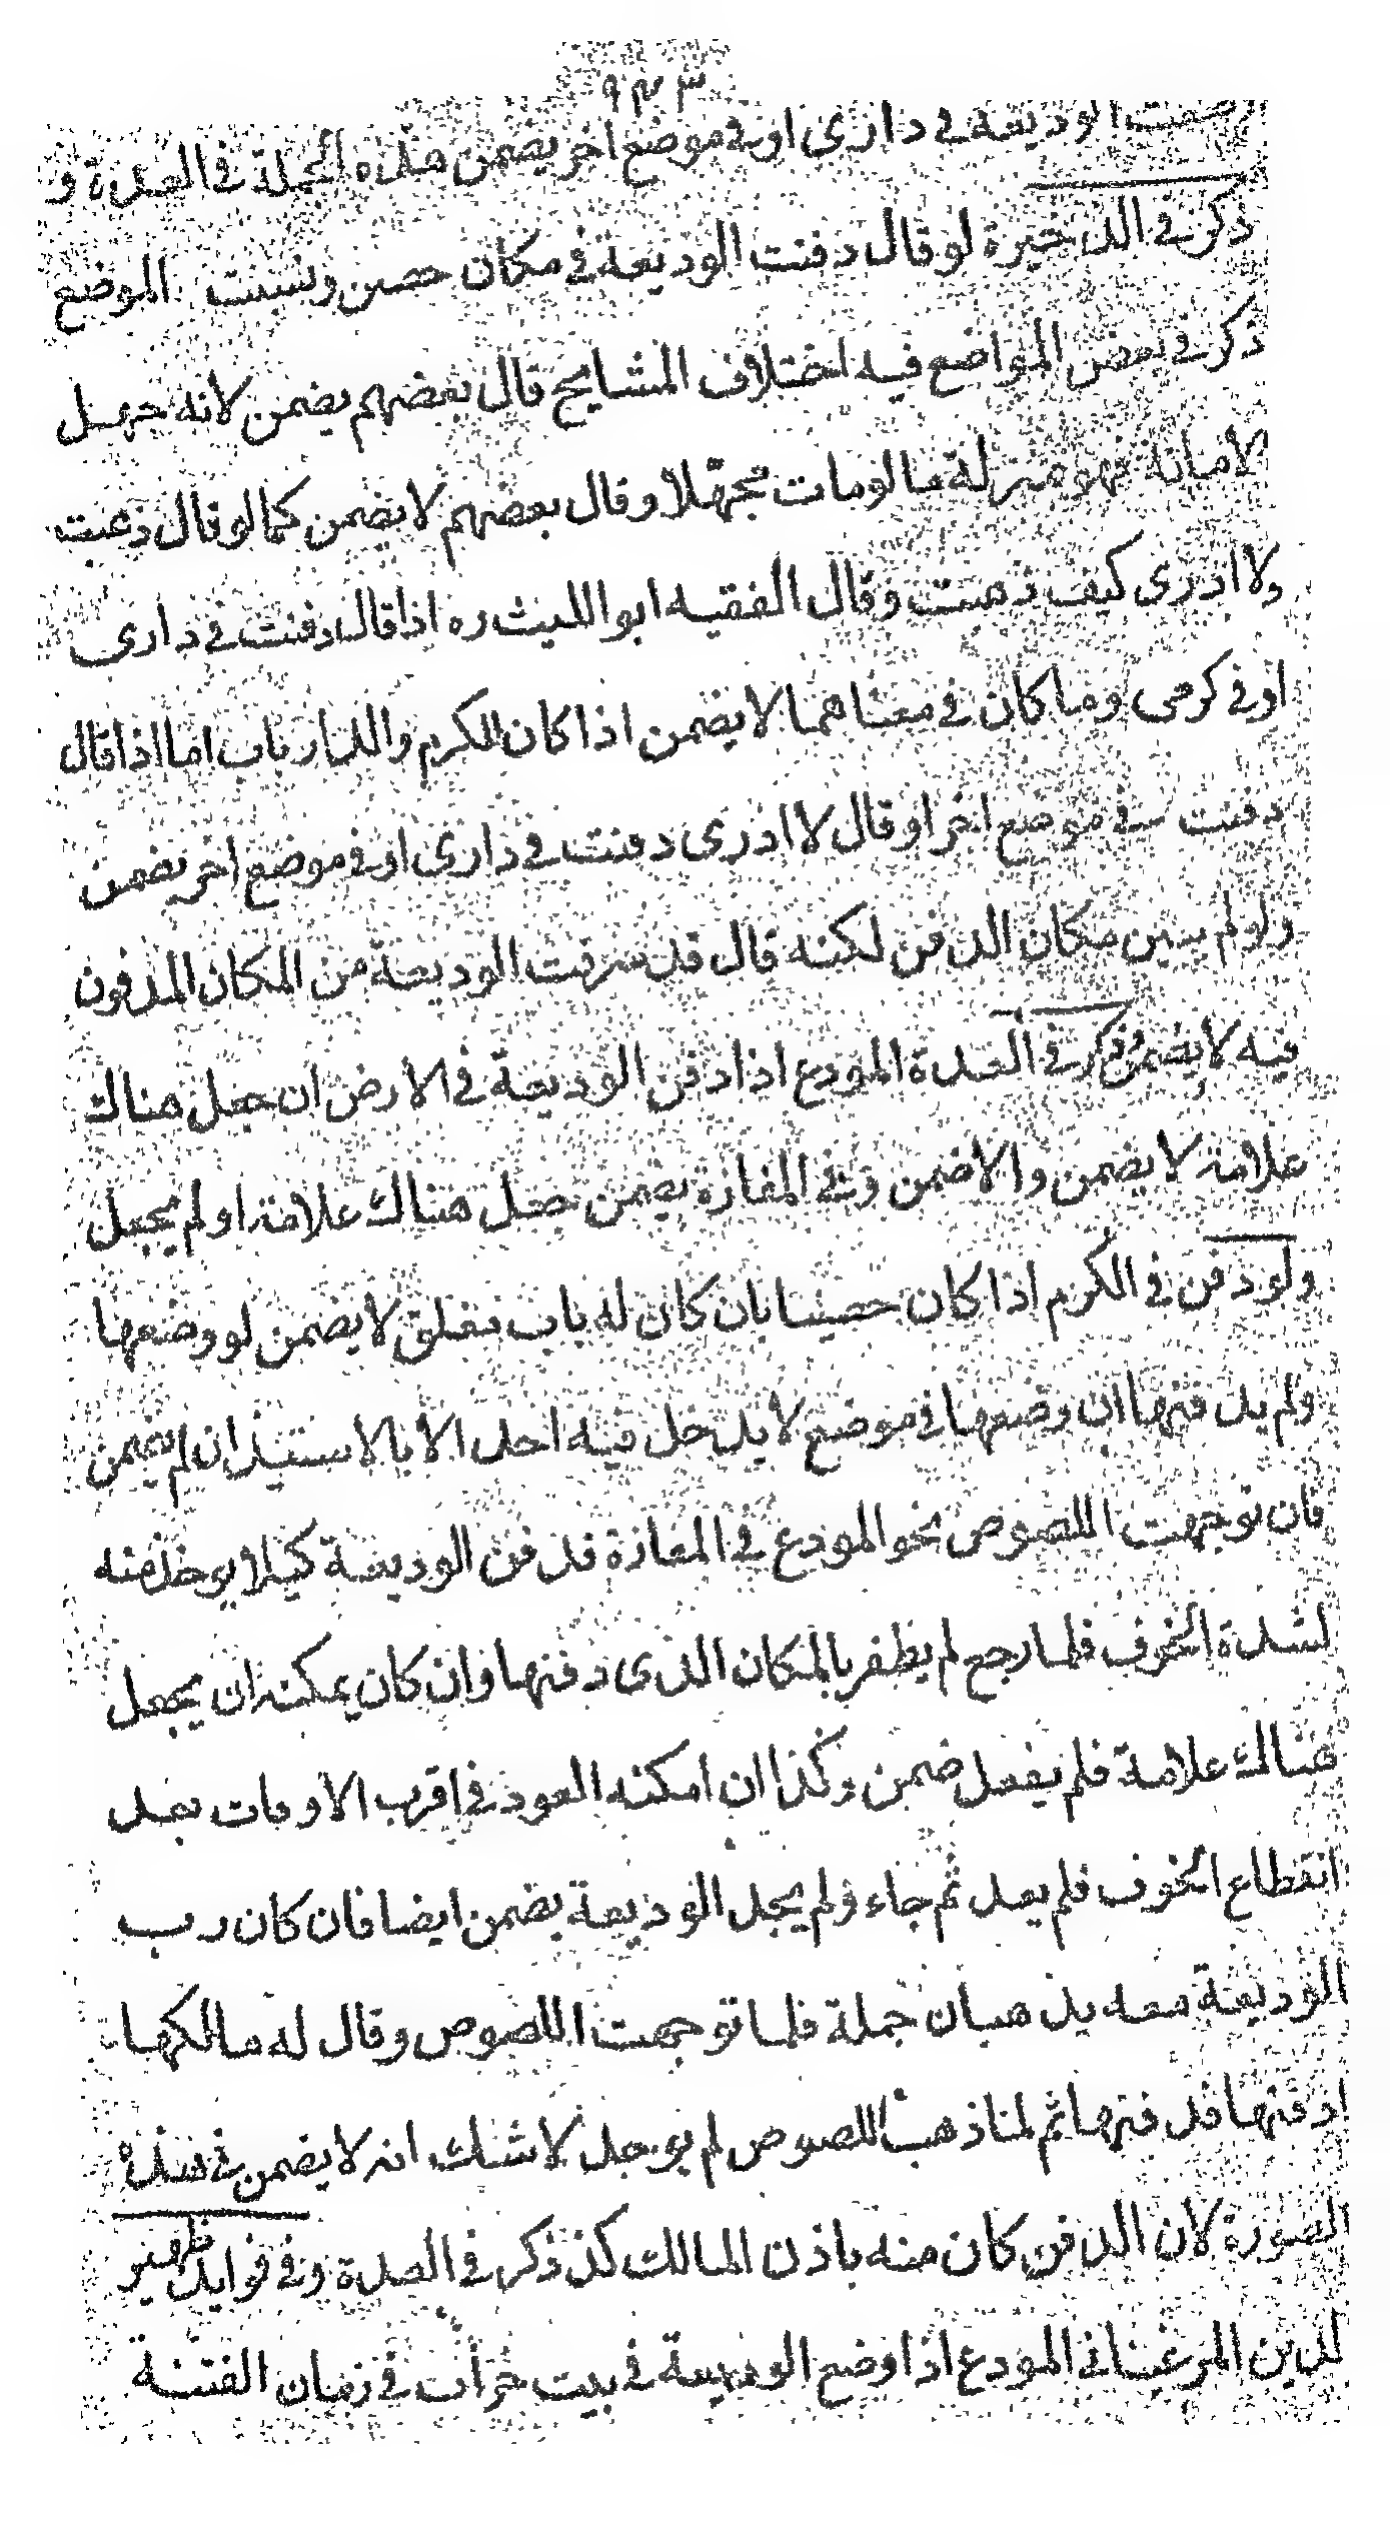 ٩٢٣
الوديعة في داري او في موضع اخر يضمن هذه الجملة في العدة و
ذكر في الذخيرة لو قال دفنت الوديعة في مكان حصين ونسيت الموضع
ذكر في بعض المواضع فيه اختلاف المشايخ قال بعضهم يضمن لانه جهل
الامانة فهو بمنزلة ما لو مات مجهلا وقال بعضهم لا يضمن كما لو قال ذهبت
ولا ادري كيف ذهبت وقال الفقيه ابو الليث ره اذا قال دفنت في داري
او في كرمي وما كان في معناهما لا يضمن اذا كان للكرم والدار باب اما اذا قال
دفنت في موضع اخر او قال لا ادري دفنت في داري او في موضع اخر يضمن
ولو لم يبين مكان الدفن لكنه قال قد سرقت الوديعة من المكان المدفون
فيه لا يضمن وذكر في العدة المودع اذا دفن الوديعة في الارض ان جعل هناك
علامة لا يضمن والا ضمن وفي المفازة يضمن جعل هناك علامة او لم يجعل
ولو دفن في الكرم اذا كان حصينا بان كان له باب مغلق لا يضمن لو وضعها
ولم يدفنها ان وضعها في موضع لا يدخل فيه احد الا بالاستيذان لم يضمن
فان توجهت اللصوص نحو المودع في المفازة فدفن الوديعة كيلا يوخذ منه
لشدة الخوف فلما رجع لم يظفر بالمكان الذي دفنها وان كان يمكنه ان يجعل
هناك علامة فلم يفعل ضمن وكذا ان امكنه العود في اقرب الاوقات بعد
انقطاع الخوف فلم يعد ثم جاء ولم يجد الوديعة يضمن ايضا فان كان رب
الوديعة معه يذهبان جملة فلما توجهت اللصوص وقال له مالكها
ادفنها فدفنها ثم لما ذهب اللصوص لم يوجد لا شك انه لا يضمن في هذه
الصورة لان الدفن كان منه باذن المالك كذ ذكر في العدة وفي فوايد ظهير
الدين المرغيناني المودع اذا وضع الوديعة في بيت خراب في زمان الفتنة